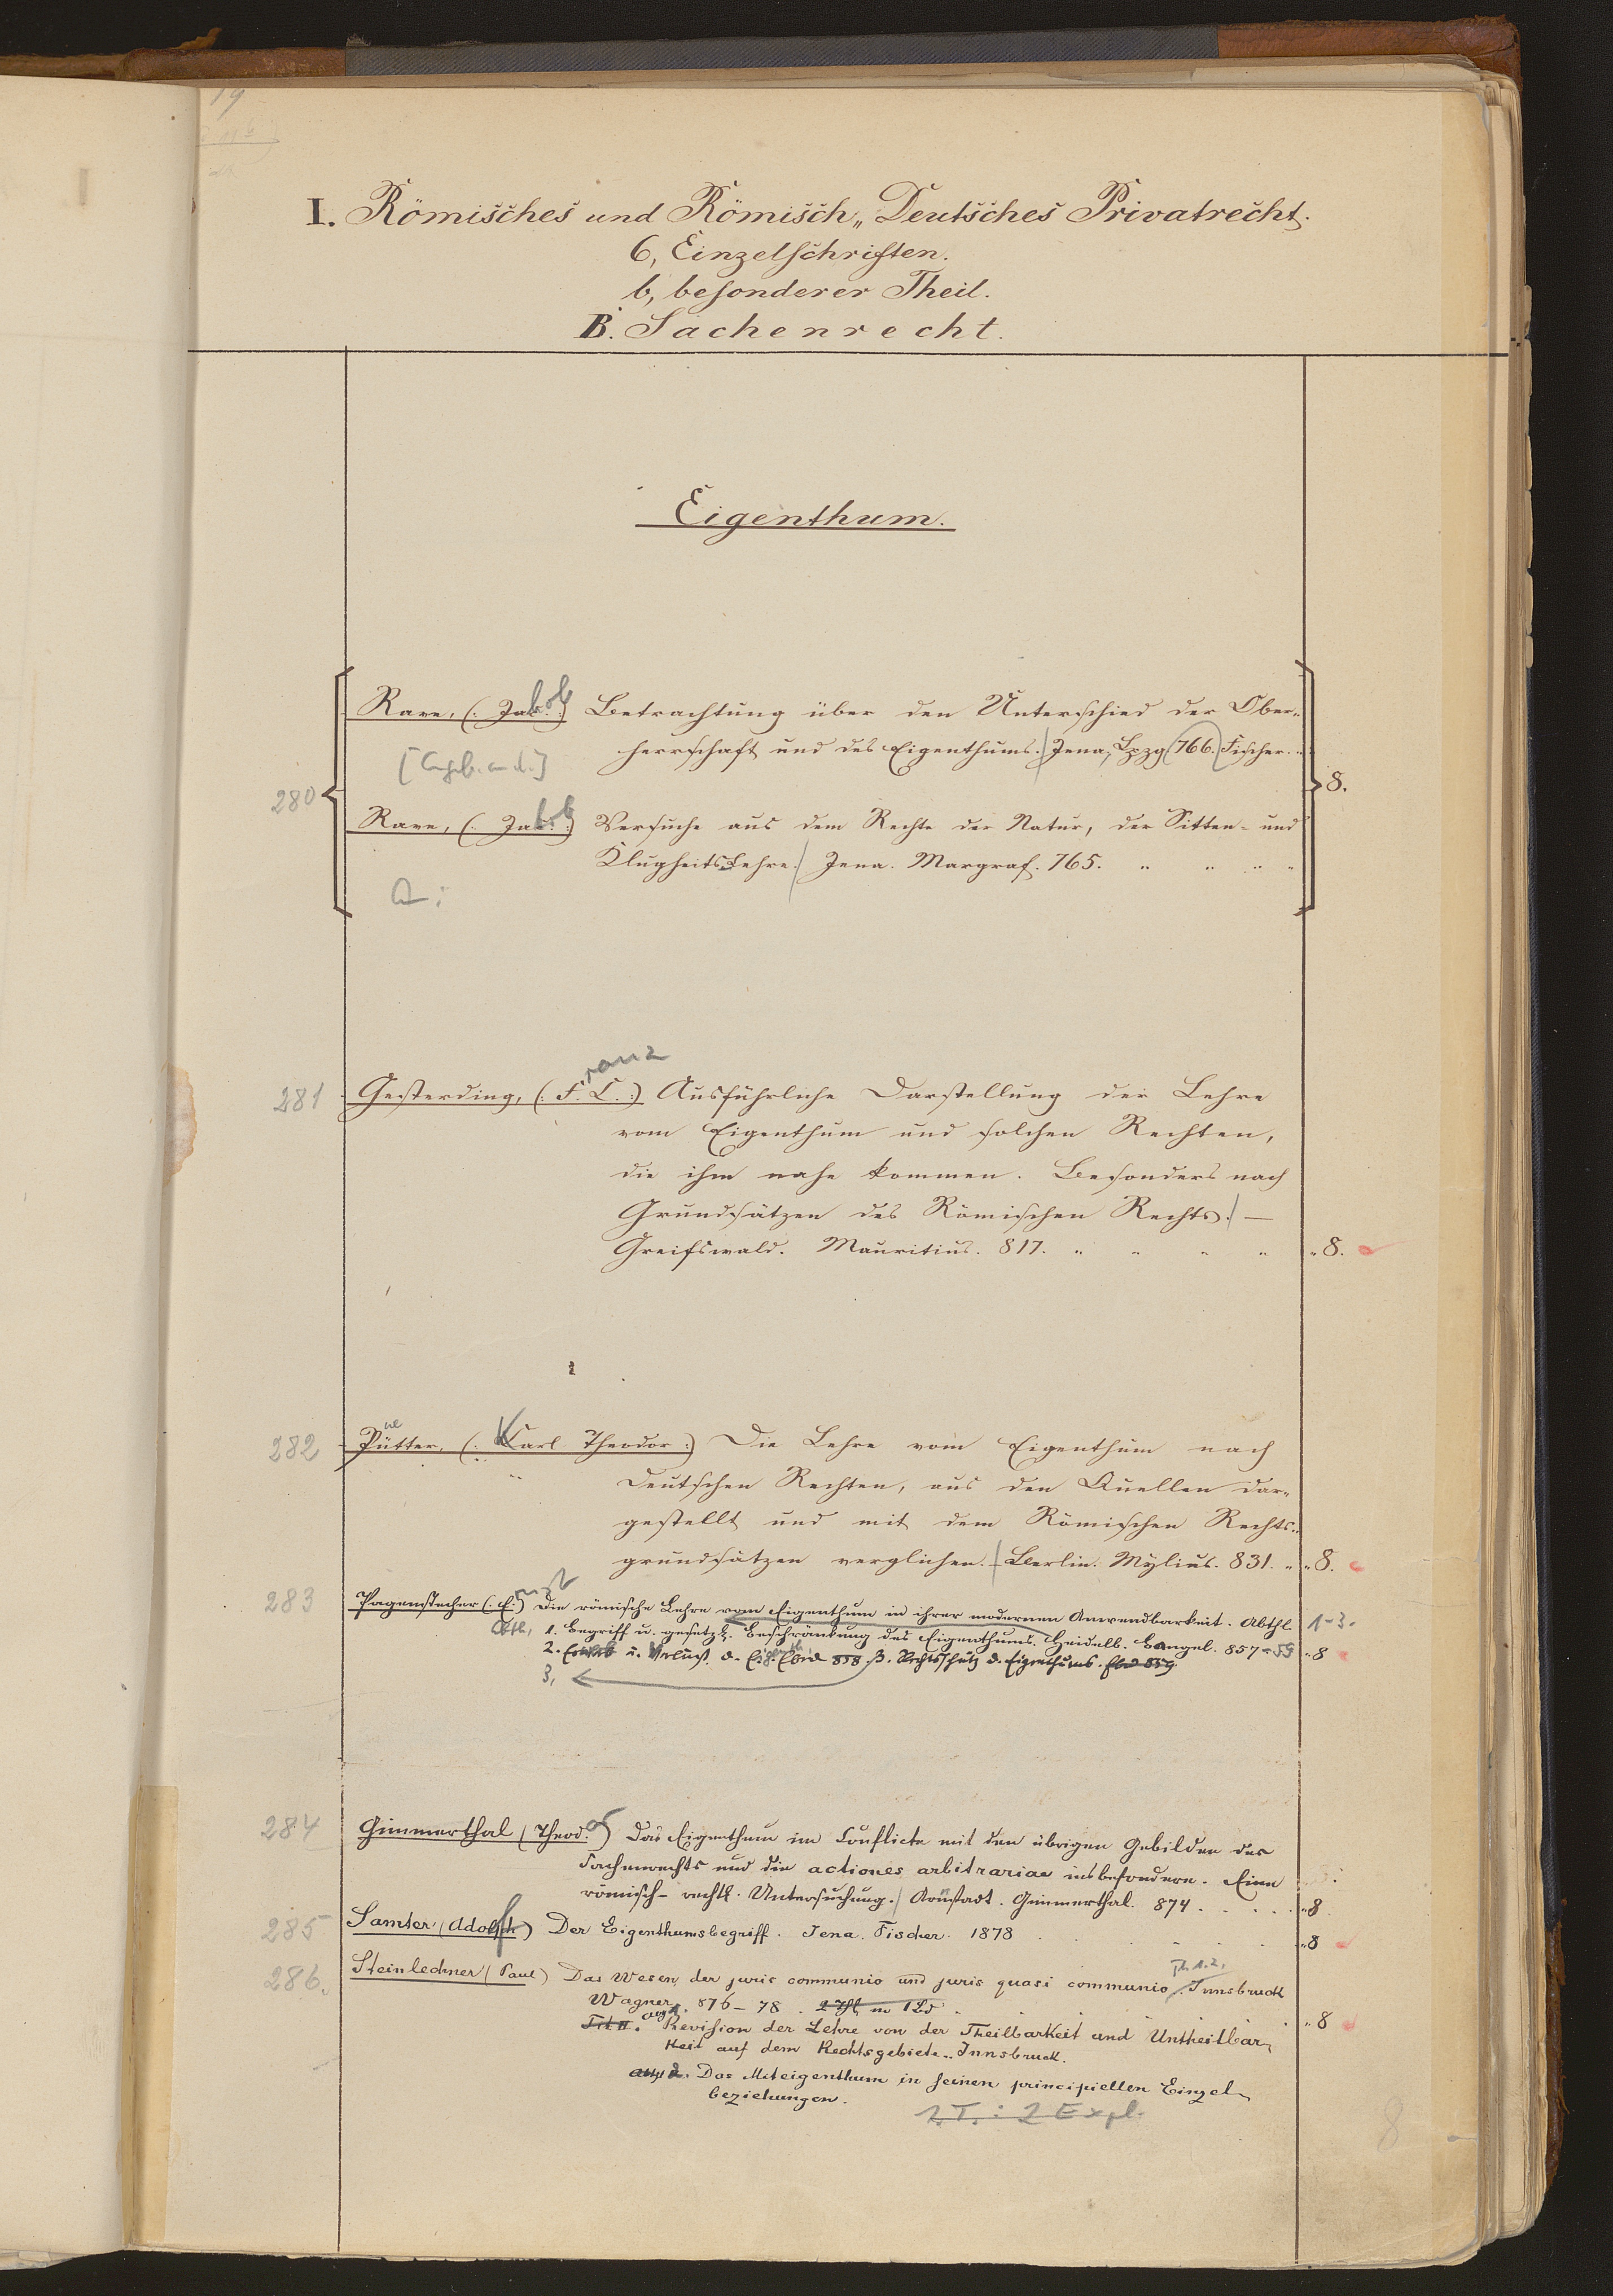 19
I. Römisches und Römisch„Deutsches Privatrecht.
6, Einzelschriften.
b, besonderer Theil.
B. Sachenrecht.
Eigenthum.
280
Rave, (: Jakob :) Betrachtung über den Unterschied der Ober-
herrschaft und des Eigenthums. Jena, Lpzg (766.) Fischer.
[Angeb. an d.]
8.
Rave, (: Jakob :) Versuche aus dem Rechte der Natur, der Sitten- und
Klugheits-Lehre. Jena. Margraf. 765. „ „ „ „
281 Gesterding, (: Franz C. :) Ausführliche Darstellung der Lehre
vom Eigenthum und solchen Rechten,
die ihm nahe kommen. Besonders nach
Grundsätzen des Römischen Rechts. —
Greifswald. Mauritius. 817. „ „ „ „ „ 8.
282 Pütter, (: Karl Theodor :) Die Lehre vom Eigenthum nach
Deutschen Rechten, aus den Quellen dar-
gestellt und mit dem Römischen Rechts-
grundsätzen verglichen. — Berlin. Mylius. 831. „ „ 8.
283 Pagenstecher (: Ernst :) Die römische Lehre vom Eigenthum in ihrer modernen Anwendbarkeit. Abthl. 1-3.
Abth. 1. Begriff u. gesetzl. Beschränkung des Eigenthums. Heidelb. Bangel. 857-59 „ 8
2. Erwerb u. Verlust d. Eigenth. Ebd 858 3. Rechtsschutz d. Eigenthums. Ebd 859.
3,
284 Gimmerthal (Theodor) Das Eigenthum im Conflicte mit den übrigen Gebilden des
Sachenrechts und die actiones arbitrariae insbesondere. Eine
römisch-rechtl. Untersuchung. Arnstadt. Gimmerthal. 874. . . . . „ 8
285 Samter (Adolf) Der Eigenthumsbegriff. Jena. Fischer. 1878 . . . . „ 8
286. Steinlechner (Paul) Das Wesen der juris communio und juris quasi communio. Th. 1.2. Innsbruck
Wagner. 876-78. 2 Thl in 1 Bd . . . . „ 8
Revision der Lehre von der Theilbarkeit und Untheilbar-
keit auf dem Rechtsgebiete. Innsbruck.
Das Miteigenthum in seinen principiellen Einzel-
beziehungen.
1. T. : 2 Expl.
8